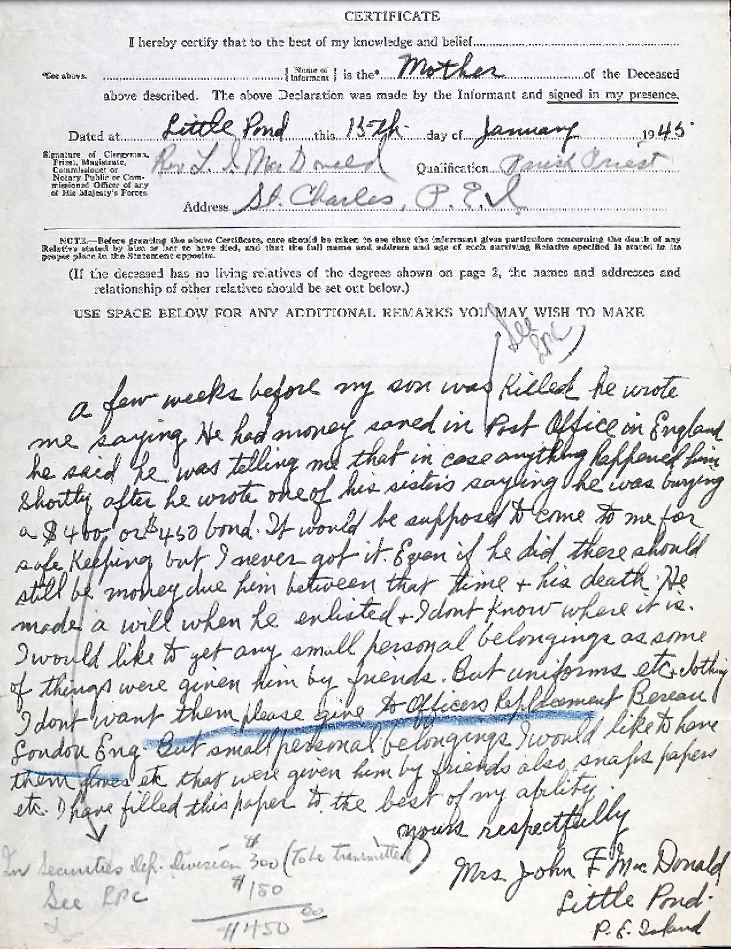 CERTIFICATE
I hereby certify that to the best of my knowledge and belief
*See above. { Name of Informant } is the* Mother of the Deceased
above described. The above Declaration was made by the Informant and signed in my presence.
Dated at Little Pond this 15th day of January 1945
Signature of Clergyman, Priest, Magistrate, Commissioner or Notary Public or Commissioned Officer of any of His Majesty's Forces. Rev L. J. MacDonald Qualification Parish Priest
Address St. Charles, P.E.I
NOTE.—Before granting the above Certificate, care should be taken to see that the informant gives particulars concerning the death of any
Relative stated by him or her to have died, and that the full name and address and age of each surviving Relative specified is stated in its
proper place in the Statement opposite.
(If the deceased has no living relatives of the degrees shown on page 2, the names and addresses and
relationship of other relatives should be set out below.)
USE SPACE BELOW FOR ANY ADDITIONAL REMARKS YOU MAY WISH TO MAKE
See
a few weeks before my son was Killed he wrote
me saying He had money saved in Post Office in England
he said he was telling me that in case anything happened him
Shortly after he wrote one of his sisters saying he was buying
a $400 or $450 bond. It would be supposed to come to me for
safe Keeping but I never got it. Even if he did there should
still be money due him between that time + his death. He
made a will when he enlisted + I dont know where it is.
I would like to get any small personal belongings as some
of things were given him by friends. But uniforms etc + clothing
I dont want them please give to Officers Replacement Bereau
London Eng. But small personal belongings I would like to have
them etc that were given him by friends also snaps papers
etc. I have filled this paper to the best of my ability.
yours respectfully
Mrs John F MacDonald
Little Pond.
P. E. Island
In Securities Dep. Division $300 (To be transmitted)
See $150
$450 00